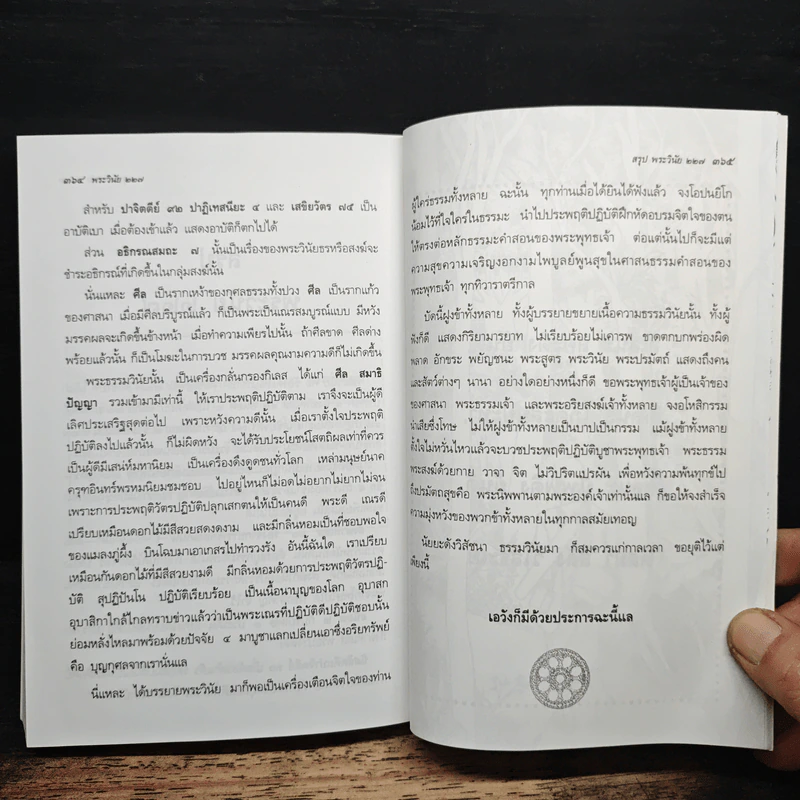 ๓๖๔ พระวินัย ๒๒๗
สำหรับ ปาจิตตีย์ ๙๒ ปาฏิเทสนียะ ๔ และ เสขิยวัตร ๗๕ เป็น
อาบัติเบา เมื่อต้องเข้าแล้ว แสดงอาบัติก็ตกไปได้
ส่วน อธิกรณสมถะ ๗ นั้นเป็นเรื่องของพระวินัยธรหรือสงฆ์จะ
ชำระอธิกรณ์ที่เกิดขึ้นในกลุ่มสงฆ์นั้น
นั่นแหละ ศีล เป็นรากเหง้าของกุศลธรรมทั้งปวง ศีล เป็นรากแก้ว
ของศาสนา เมื่อมีศีลบริบูรณ์แล้ว ก็เป็นพระเป็นเณรสมบูรณ์แบบ มีหวัง
มรรคผลจะเกิดขึ้นข้างหน้า เมื่อทำความเพียรไปนั้น ถ้าศีลขาด ศีลด่าง
พร้อยแล้วนั้น ก็เป็นโมฆะในการบวช มรรคผลคุณงามความดีก็ไม่เกิดขึ้น
พระธรรมวินัยนั้น เป็นเครื่องกลั่นกรองกิเลส ได้แก่ ศีล สมาธิ
ปัญญา รวมเข้ามามีเท่านี้ ให้เราประพฤติปฏิบัติตาม เราจึงจะเป็นผู้ดี
เลิศประเสริฐสุดต่อไป เพราะหวังความดีนั้น เมื่อเราตั้งใจประพฤติ
ปฏิบัติลงไปแล้วนั้น ก็ไม่ผิดหวัง จะได้รับประโยชน์โสตถิผลเท่าที่ควร
เป็นผู้ดีมีเสน่ห์มหานิยม เป็นเครื่องดึงดูดชนทั่วโลก เหล่ามนุษย์นาค
ครุฑอินทร์พรหมนิยมชมชอบ ไปอยู่ไหนก็ไม่อดไม่อยากไม่ยากไม่จน
เพราะการประพฤติวัตรปฏิบัติปลุกเสกตนให้เป็นคนดี พระดี เณรดี
เปรียบเหมือนดอกไม้มีสีสวยสดงดงาม และมีกลิ่นหอมเป็นที่ชอบพอใจ
ของแมลงภู่ผึ้ง บินโฉบมาเอาเกสรไปทำรวงรัง อันนี้ฉันใด เราเปรียบ
เหมือนกันดอกไม้ที่มีสีสวยงามดี มีกลิ่นหอมด้วยการประพฤติวัตรปฏิ-
บัติ สุปฏิปันโน ปฏิบัติเรียบร้อย เป็นเนื้อนาบุญของโลก อุบาสก
อุบาสิกาใกล้ไกลทราบข่าวแล้วว่าเป็นพระเณรที่ปฏิบัติดีปฏิบัติชอบนั้น
ย่อมหลั่งไหลมาพร้อมด้วยปัจจัย ๔ มาบูชาแลกเปลี่ยนเอาซึ่งอริยทรัพย์
คือ บุญกุศลจากเรานั่นแล
นี่แหละ ได้บรรยายพระวินัย มาก็พอเป็นเครื่องเตือนจิตใจของท่าน
สรุป พระวินัย ๒๒๗ ๓๖๕
ผู้ใคร่ธรรมทั้งหลาย ฉะนั้น ทุกท่านเมื่อได้ยินได้ฟังแล้ว จงโอปนยิโก
น้อมไว้ที่ใจใคร่ในธรรมะ นำไปประพฤติปฏิบัติฝึกหัดอบรมจิตใจของตน
ให้ตรงต่อหลักธรรมะคำสอนของพระพุทธเจ้า ต่อแต่นั้นไปก็จะมีแต่
ความสุขความเจริญงอกงามไพบูลย์พูนสุขในศาสนธรรมคำสอนของ
พระพุทธเจ้า ทุกทิวาราตรีกาล
บัดนี้ฝูงข้าทั้งหลาย ทั้งผู้บรรยายขยายเนื้อความธรรมวินัยนั้น ทั้งผู้
ฟังก็ดี แสดงกิริยามารยาท ไม่เรียบร้อยไม่เคารพ ขาดตกบกพร่องผิด
พลาด อักขระ พยัญชนะ พระสูตร พระวินัย พระปรมัตถ์ แสดงถึงคน
และสัตว์ต่างๆ นานา อย่างใดอย่างหนึ่งก็ดี ขอพระพุทธเจ้าผู้เป็นเจ้าของ
ของศาสนา พระธรรมเจ้า และพระอริยสงฆ์เจ้าทั้งหลาย จงอโหสิกรรม
นำเสียซึ่งโทษ ไม่ให้ฝูงข้าทั้งหลายเป็นบาปเป็นกรรม แม้ฝูงข้าทั้งหลาย
ตั้งใจไม่หวั่นไหวแล้วจะบวชประพฤติปฏิบัติบูชาพระพุทธเจ้า พระธรรม
พระสงฆ์ด้วยกาย วาจา จิต ไม่วิปริตแปรผัน เพื่อหวังความพ้นทุกข์ไป
ถึงปรมัตถสุขคือ พระนิพพานตามพระองค์เจ้าเท่านั้นแล ก็ขอให้จงสำเร็จ
ความมุ่งหวังของพวกข้าทั้งหลายในทุกกาลสมัยเทอญ
นัยยะดังวิสัชนา ธรรมวินัยมา ก็สมควรแก่กาลเวลา ขอยุติไว้แต่
เพียงนี้
เอวังก็มีด้วยประการฉะนี้แล